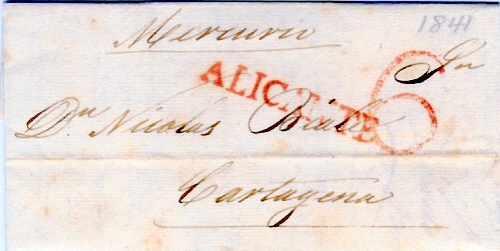 1841
Mercurio
Sr
ALICANTE
6
Dn Nicolas Biale
Cartagena